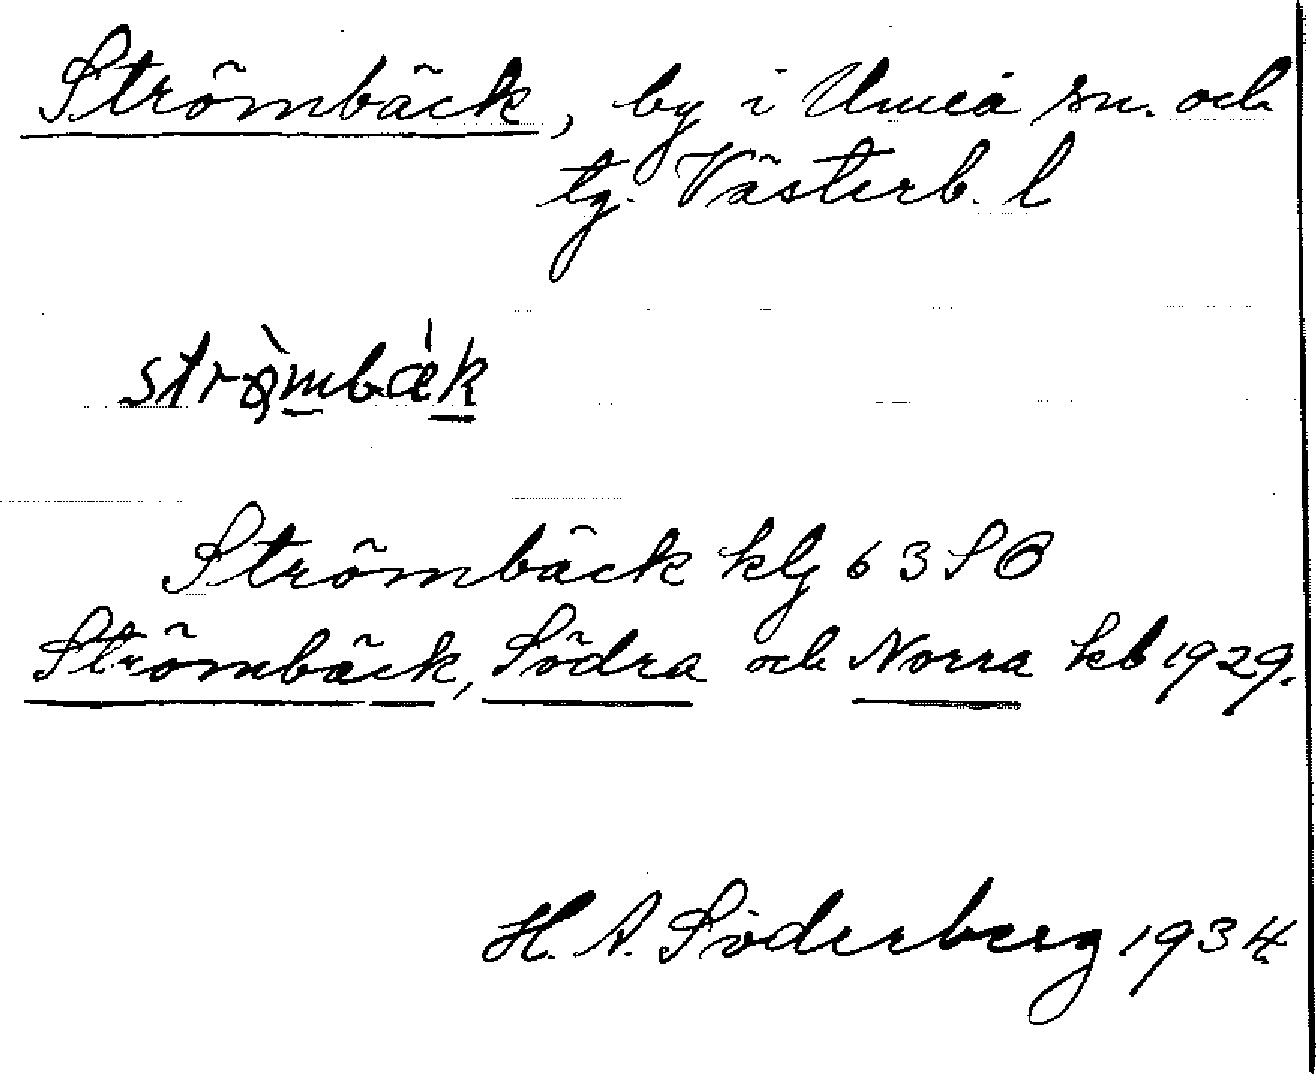 Strömbäck, by i Umeå sn. och
tg. Västerb. l
Strömbäck klg 63 SB
Strömbäck, Södra och Norra kb 1929.
H. A. Söderberg 1934